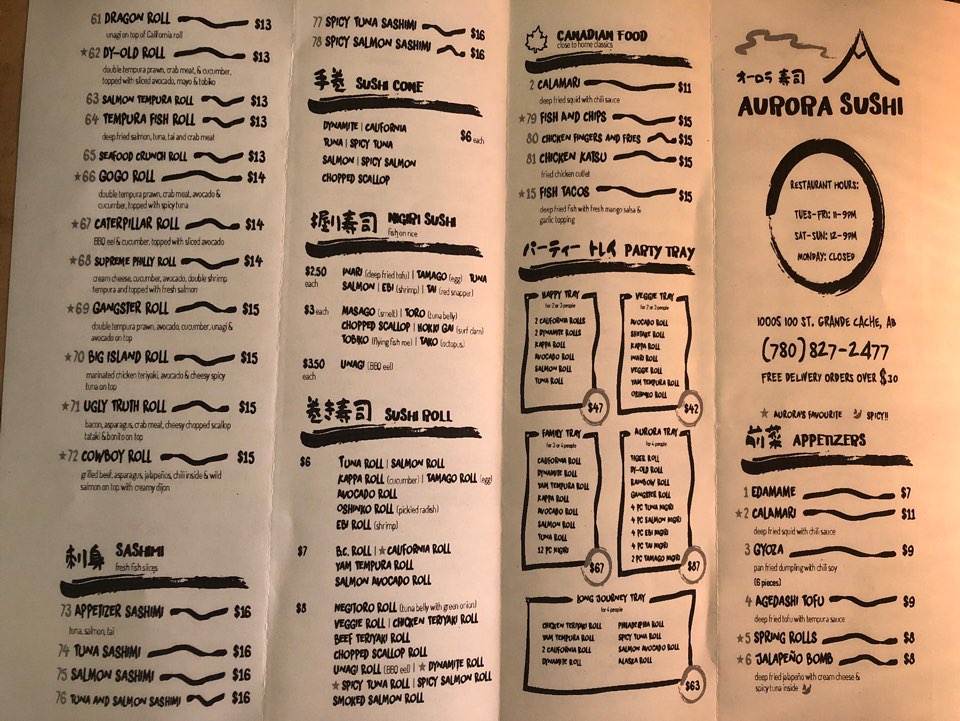 61 DRAGON ROLL $13
unagi on top of California roll
★62 DY-OLD ROLL $13
double tempura prawn, crab meat, & cucumber,
topped with sliced avocado, mayo & tobiko
63 SALMON TEMPURA ROLL $13
64 TEMPURA FISH ROLL $13
deep fried salmon, tuna, tai and crab meat
65 SEAFOOD CRUNCH ROLL $13
★66 GOGO ROLL $14
double tempura prawn, crab meat, avocado &
cucumber, topped with spicy tuna
★67 CATERPILLAR ROLL $14
BBQ eel & cucumber, topped with sliced avocado
★68 SUPREME PHILLY ROLL $14
cream cheese, cucumber, avocado, double shrimp
tempura and topped with fresh salmon
★69 GANGSTER ROLL $15
double tempura prawn, avocado, cucumber, unagi &
avocado on top
★70 BIG ISLAND ROLL $15
marinated chicken teriyaki, avocado & cheesy spicy
tuna on top
★71 UGLY TRUTH ROLL $15
bacon, asparagus, crab meat, cheesy chopped scallop
tataki & bonito on top
★72 COWBOY ROLL $15
grilled beef, asparagus, jalapeños, chili inside & wild
salmon on top with creamy dijon
刺身 SASHIMI
fresh fish slices
73 APPETIZER SASHIMI $16
tuna, salmon, tai
74 TUNA SASHIMI $16
75 SALMON SASHIMI $16
76 TUNA AND SALMON SASHIMI $16
77 SPICY TUNA SASHIMI $16
78 SPICY SALMON SASHIMI $16
手巻 SUSHI CONE
DYNAMITE | CALIFORNIA $6 each
TUNA | SPICY TUNA
SALMON | SPICY SALMON
CHOPPED SCALLOP
握り寿司 NIGIRI SUSHI
fish on rice
$2.50 each INARI (deep fried tofu) | TAMAGO (egg) TUNA
SALMON | EBI (shrimp) | TAI (red snapper)
$3 each MASAGO (smelt) | TORO (tuna belly)
CHOPPED SCALLOP | HOKKI GAI (surf clam)
TOBIKO (flying fish roe) | TAKO (octopus)
$3.50 each UNAGI (BBQ eel)
巻き寿司 SUSHI ROLL
$6 TUNA ROLL | SALMON ROLL
KAPPA ROLL (cucumber) | TAMAGO ROLL (egg)
AVOCADO ROLL
OSHINKO ROLL (pickled radish)
EBI ROLL (shrimp)
$7 B.C. ROLL | ★CALIFORNIA ROLL
YAM TEMPURA ROLL
SALMON AVOCADO ROLL
$8 NEGITORO ROLL (tuna belly with green onion)
VEGGIE ROLL | CHICKEN TERIYAKI ROLL
BEEF TERIYAKI ROLL
CHOPPED SCALLOP ROLL
UNAGI ROLL (BBQ eel) | ★ DYNAMITE ROLL
★ SPICY TUNA ROLL | SPICY SALMON ROLL
SMOKED SALMON ROLL
CANADIAN FOOD
close to home classics
2 CALAMARI $11
deep fried squid with chili sauce
★79 FISH AND CHIPS $15
80 CHICKEN FINGERS AND FRIES $15
81 CHICKEN KATSU $15
fried chicken cutlet
★15 FISH TACOS $15
deep fried fish with fresh mango salsa &
garlic topping
パーティー トレイ PARTY TRAY
HAPPY TRAY
for 2 or 3 people
2 CALIFORNIA ROLLS
2 DYNAMITE ROLLS
KAPPA ROLL
AVOCADO ROLL
SALMON ROLL
TUNA ROLL
$47
VEGGIE TRAY
for 2 or 3 people
AVOCADO ROLL
SHIITAKE ROLL
KAPPA ROLL
INARI ROLL
VEGGIE ROLL
YAM TEMPURA ROLL
OSHINKO ROLL
$42
FAMILY TRAY
for 3 or 4 people
CALIFORNIA ROLL
DYNAMITE ROLL
YAM TEMPURA ROLL
KAPPA ROLL
AVOCADO ROLL
SALMON ROLL
TUNA ROLL
12 PC NIGIRI
$67
AURORA TRAY
for 4 people
TIGER ROLL
DY-OLD ROLL
RAINBOW ROLL
GANGSTER ROLL
4 PC TUNA NIGIRI
4 PC SALMON NIGIRI
4 PC EBI NIGIRI
4 PC TAI NIGIRI
2 PC TAMAGO NIGIRI
$87
LONG JOURNEY TRAY
for 4 people
CHICKEN TERIYAKI ROLL PHILADELPHIA ROLL
YAM TEMPURA ROLL SPICY TUNA ROLL
2 CALIFORNIA ROLL SALMON AVOCADO ROLL
DYNAMITE ROLL ALASKA ROLL
$63
オーロラ 寿司
AURORA SUSHI
RESTAURANT HOURS:
TUES-FRI: 11-9PM
SAT-SUN: 12-9PM
MONDAY: CLOSED
10005 100 ST. GRANDE CACHE, AB
(780) 827-2477
FREE DELIVERY ORDERS OVER $30
★ AURORA'S FAVOURITE SPICY!!
前菜 APPETIZERS
1 EDAMAME $7
★2 CALAMARI $11
deep fried squid with chili sauce
3 GYOZA $9
pan fried dumpling with chili soy
(6 pieces)
4 AGEDASHI TOFU $9
deep fried tofu with tempura sauce
★5 SPRING ROLLS $8
★6 JALAPEÑO BOMB $8
deep fried jalapeño with cream cheese &
spicy tuna inside